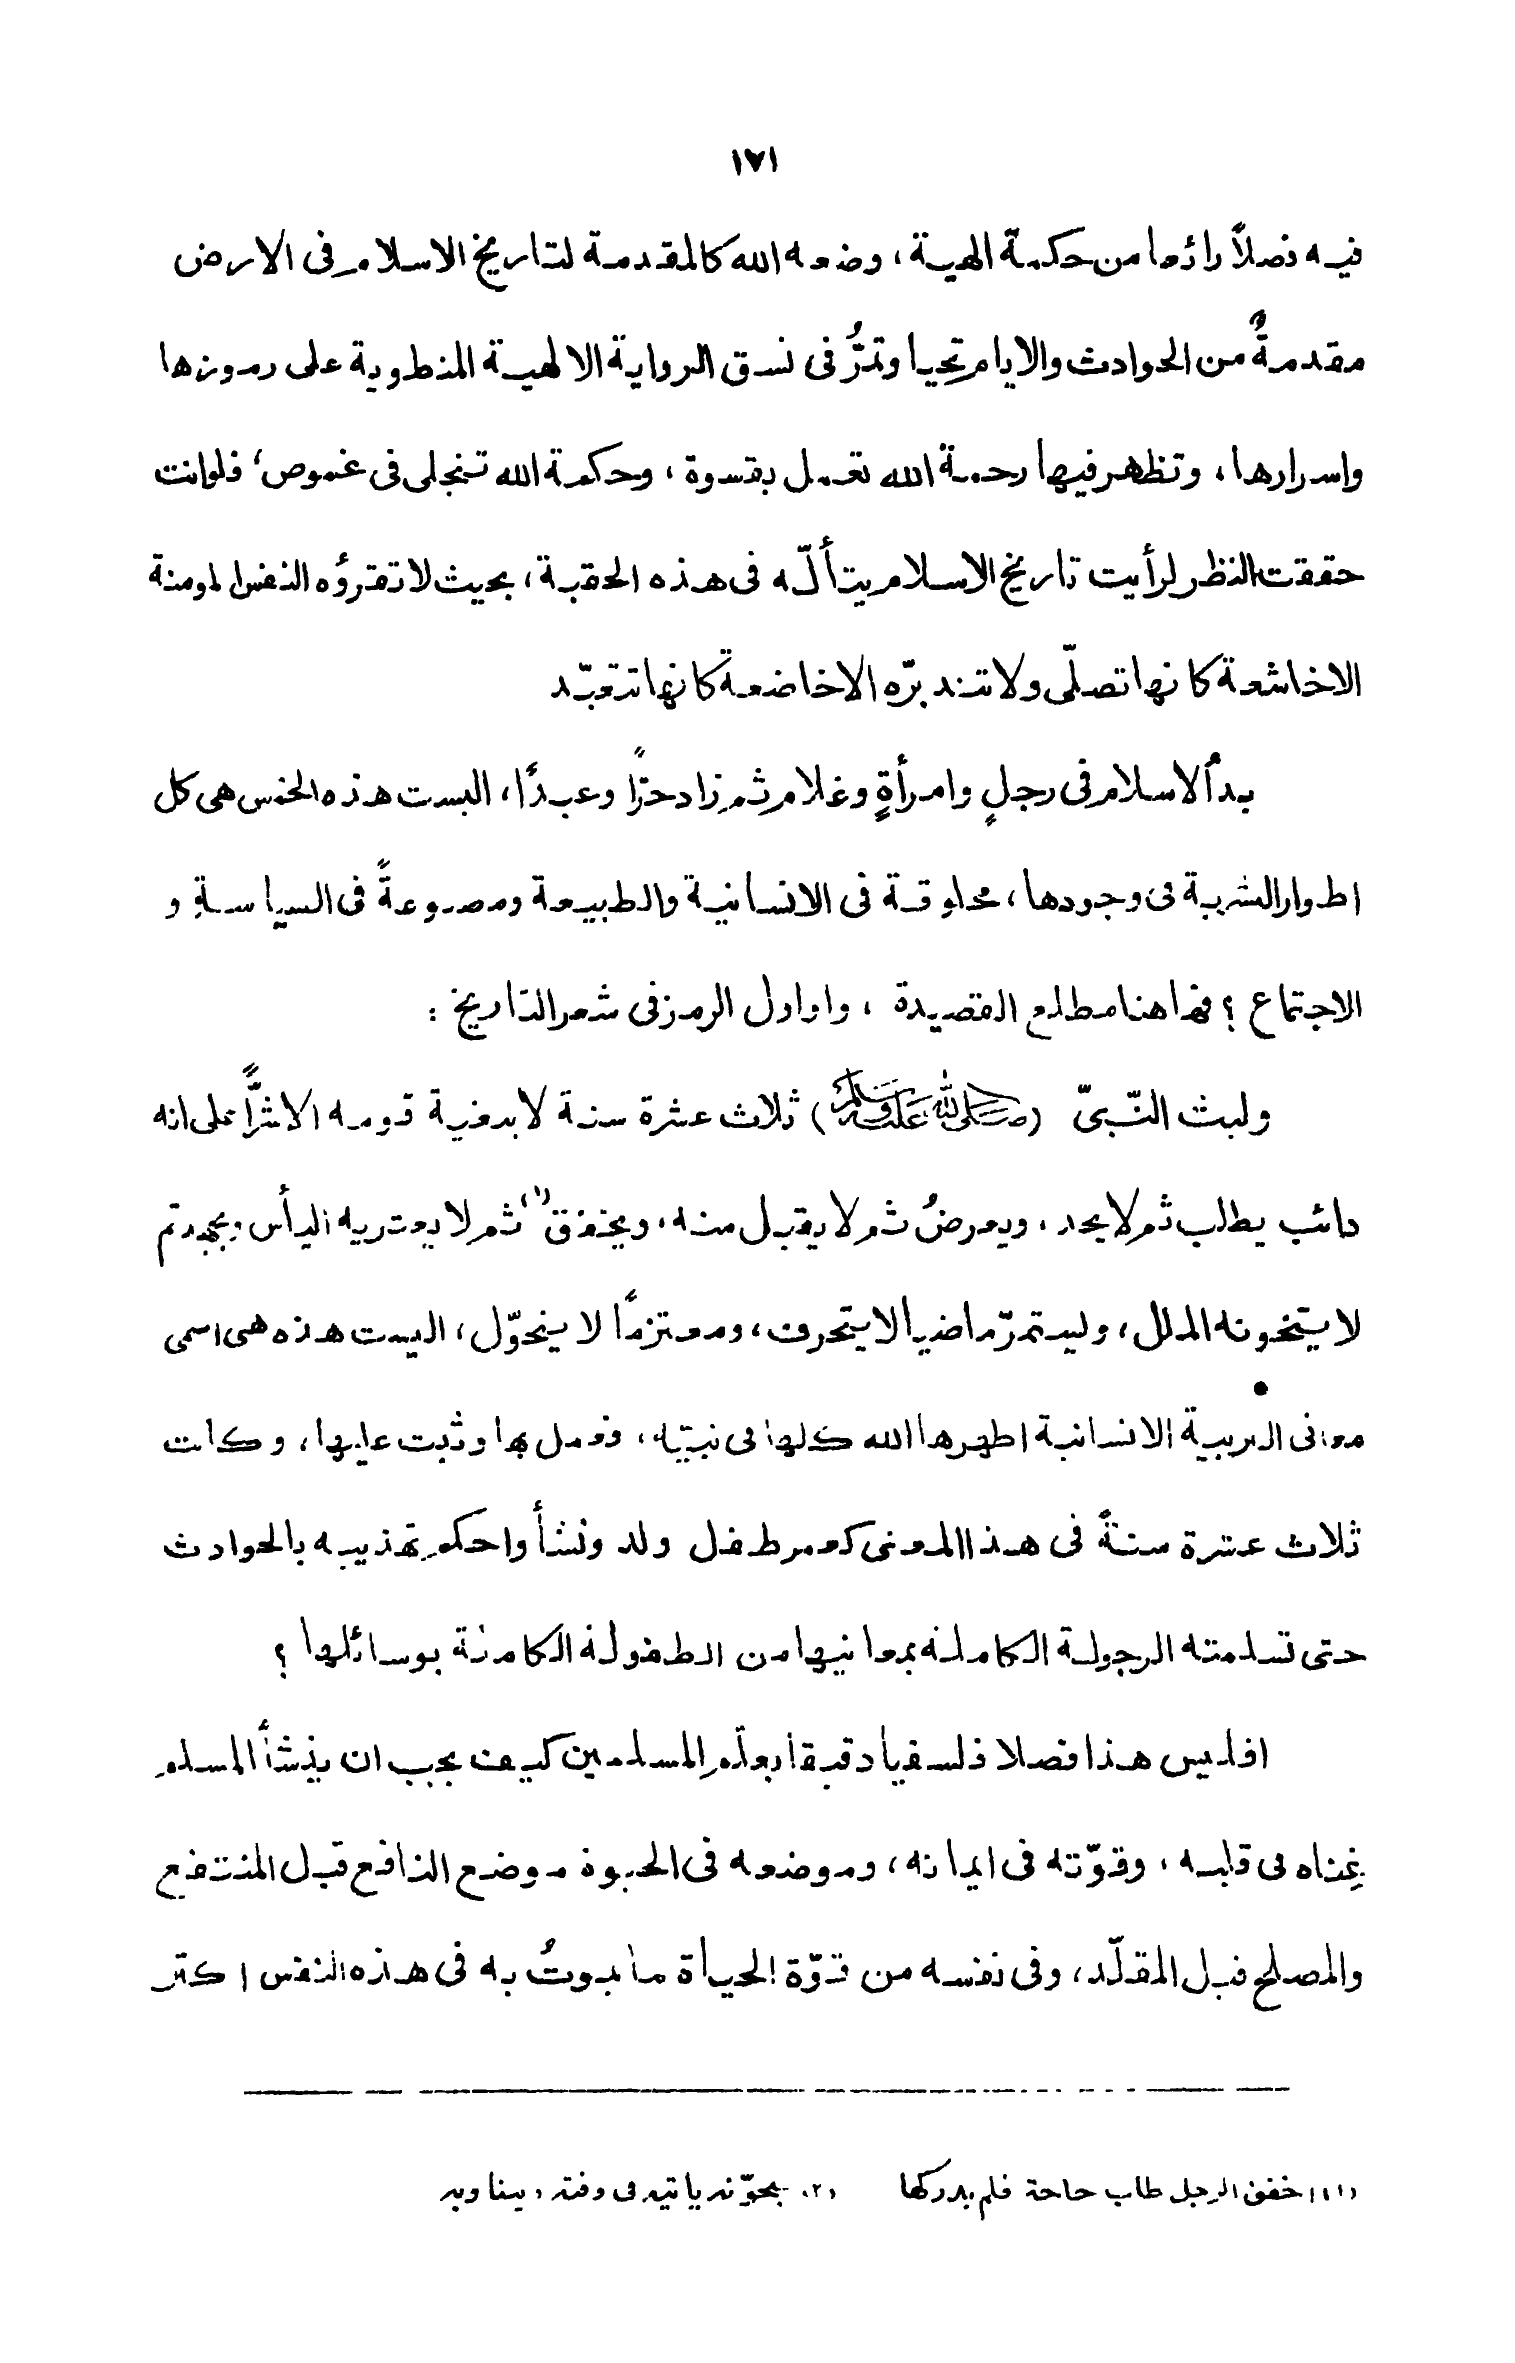 ١٧١
فيه فصلاً رائعا من حكمة الهية، وضعه الله كالمقدمة لتاريخ الاسلام فى الارض
مقدمةٌ من الحوادث والايام تحيا وتمرُّ فى نسق الرواية الالهية المنطوية على رموزها
واسرارها، وتظهر فيها رحمة الله تعمل بقسوة، وحكمة الله تنجلى فى غموض، فلو انت
حققت النظر لرأيت تاريخ الاسلام يتألّه فى هذه الحقبة، بحيث لا تقرؤه النفس المومنة
الا خاشعة كانها تصلّى ولا تتدبرّه الا خاضعة كانها تتعبّد
بدأ الاسلام فى رجلٍ وامرأةٍ وغلام ثم زاد حرًا وعبدًا، اليست هذه الخمس هى كل
اطوار البشرية فى وجودها، مخلوقة فى الانسانية والطبيعة ومصنوعةً فى السياسةِ و
الاجتماع؟ فها هنا مطلع القصيدة، واول الرمز فى شعر التاريخ:
ولبث النّبىّ (صلى الله عليه وسلم) ثلاث عشرة سنة لا يبغيه قومه الا شرًّا على انه
دائب يطلب ثم لا يجد، ويعرضُ ثم لا يقبل منه، ويخفق(١) ثم لا يعتريه اليأس ويجهد ثم
لا يتخونه الملل، ويستمرّ ماضيا لا يتحرف، ومعتزمًا لا يتحوّل، اليست هذه هى اسمى
معانى التربية الانسانية اظهرها الله كلها فى نبيّه، فعمل بها وثبت عليها، وكانت
ثلاث عشرة سنةً فى هذا المعنى كعمر طفل ولد ونشأ واحكم تهذيبه بالحوادث
حتى تسلمته الرجولة الكاملة بمعانيها من الطفولة الكامنة بوسائلها؟
افليس هذا فصلا فلسفيا دقيقا يعلّم المسلمين كيف يجب ان ينشأ المسلم
غِناه فى قلبه، وقوّته فى ايمانه، وموضعه فى الحيوة موضع النافع قبل المنتفع
والمصلح قبل المقلّد، وفى نفسه من قوّة الحياة ما يموتُ به فى هذه النفس اكثر
(١) خفق الرجل طلب حاجة فلم يدركها (٢)